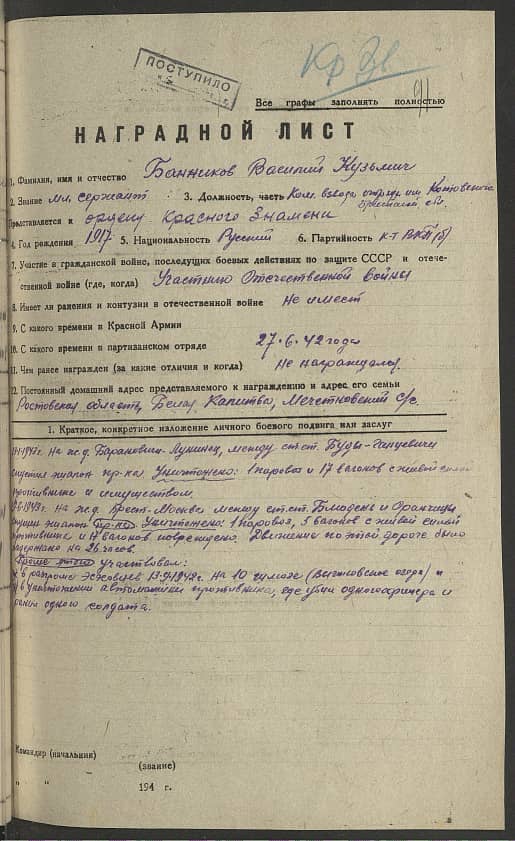 ПОСТУПИЛО
Кр Зв
Все графы заполнять полностью
НАГРАДНОЙ ЛИСТ
1. Фамилия, имя и отчество Банников Василий Кузьмич
2. Звание мл. сержант 3. Должность, часть Ком. взвода отряда им. Котовского
Представляется к ордену Красного Знамени
4. Год рождения 1917 5. Национальность Русский 6. Партийность к-т ВКП(б)
7. Участие в гражданской войне, последующих боевых действиях по защите СССР и отече-
ственной войне (где, когда) Участник Отечественной войны
8. Имеет ли ранения и контузии в отечественной войне Не имеет
9. С какого времени в Красной Армии
10. С какого времени в партизанском отряде 27.6.42 года
11. Чем ранее награжден (за какие отличия и когда) Не награждался
12. Постоянный домашний адрес представляемого к награждению и адрес его семьи
Ростовская область, Белая Калитва, с/с.
1. Краткое, конкретное изложение личного боевого подвига или заслуг
На ж.д. Барановичи-Лунинец, между ст.ст. Буды-Ганцевичи
спустил эшалон пр-ка Уничтожено: 1 паровоз и 17 вагонов с живой силой
противника и имуществом.
на ж.д. Брест-Москва между ст.ст.
эшалон пр-ка Уничтожено: 1 паровоз, 5 вагонов с живой силой
противника и вагонов повреждено. Движение по этой дороге было
задержано на 26 часов.
Кроме этого участвовал:
в разгроме 1942г. На 10 озеро) и
в уничтожении автомашины противника, где убил одного офицера и
ранил одного солдата.
Командир (начальник)
(звание)
" " 194 г.